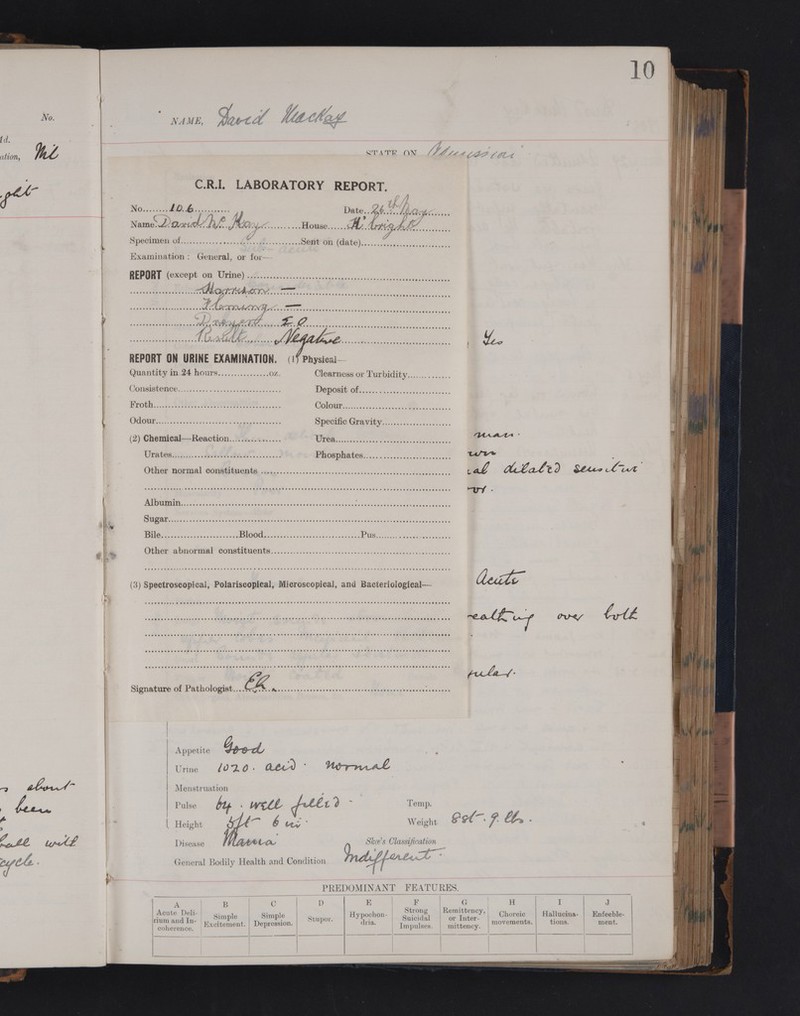 10
No.
NAME, David MacKay
ld.
ation, Nil
STATE ON Admission
C.R.I. LABORATORY REPORT.
No. 106 Date 26th May
Name David Mc Kay House Wright
Specimen of Sent on (date)
Examination: General, or for—
REPORT (except on Urine)
Harrison —
Flemming —
Dreyers E O
Result Negative
Yes
REPORT ON URINE EXAMINATION. (1) Physical—
Quantity in 24 hours oz. Clearness or Turbidity
Consistence Deposit of
Froth Colour
Odour Specific Gravity
(2) Chemical—Reaction Urea
Urates Phosphates
Other normal constituents
dilated sensitive
Albumin
Sugar
Bile Blood Pus
Other abnormal constituents
(3) Spectroscopical, Polariscopical, Microscopical, and Bacteriological—
Acute
over both
Signature of Pathologist
Appetite Good
Urine 1020. acid. normal
Menstruation
about
Pulse 64. well filled Temp.
been
Height 5ft 6 in Weight 8st. 9. lbs.
Disease Mania Skae's Classification
will
General Bodily Health and Condition Indifferent.
cycle.
PREDOMINANT FEATURES.
A B C D E F G H I J
Acute Delirium and Incoherence. Simple Excitement. Simple Depression. Stupor. Hypochondria. Strong Suicidal Impulses. Remittency, or Intermittency. Choreic movements. Hallucinations. Enfeeblement.